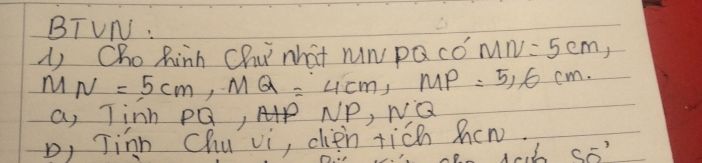 BTVN:
1) Cho hình chữ nhật MNPQ có MN = 5cm,
MN = 5cm, MQ = 4cm, MP = 5,6 cm.
a) Tính PQ, NP, NQ
b) Tính Chu vi, diện tích hcn.
số